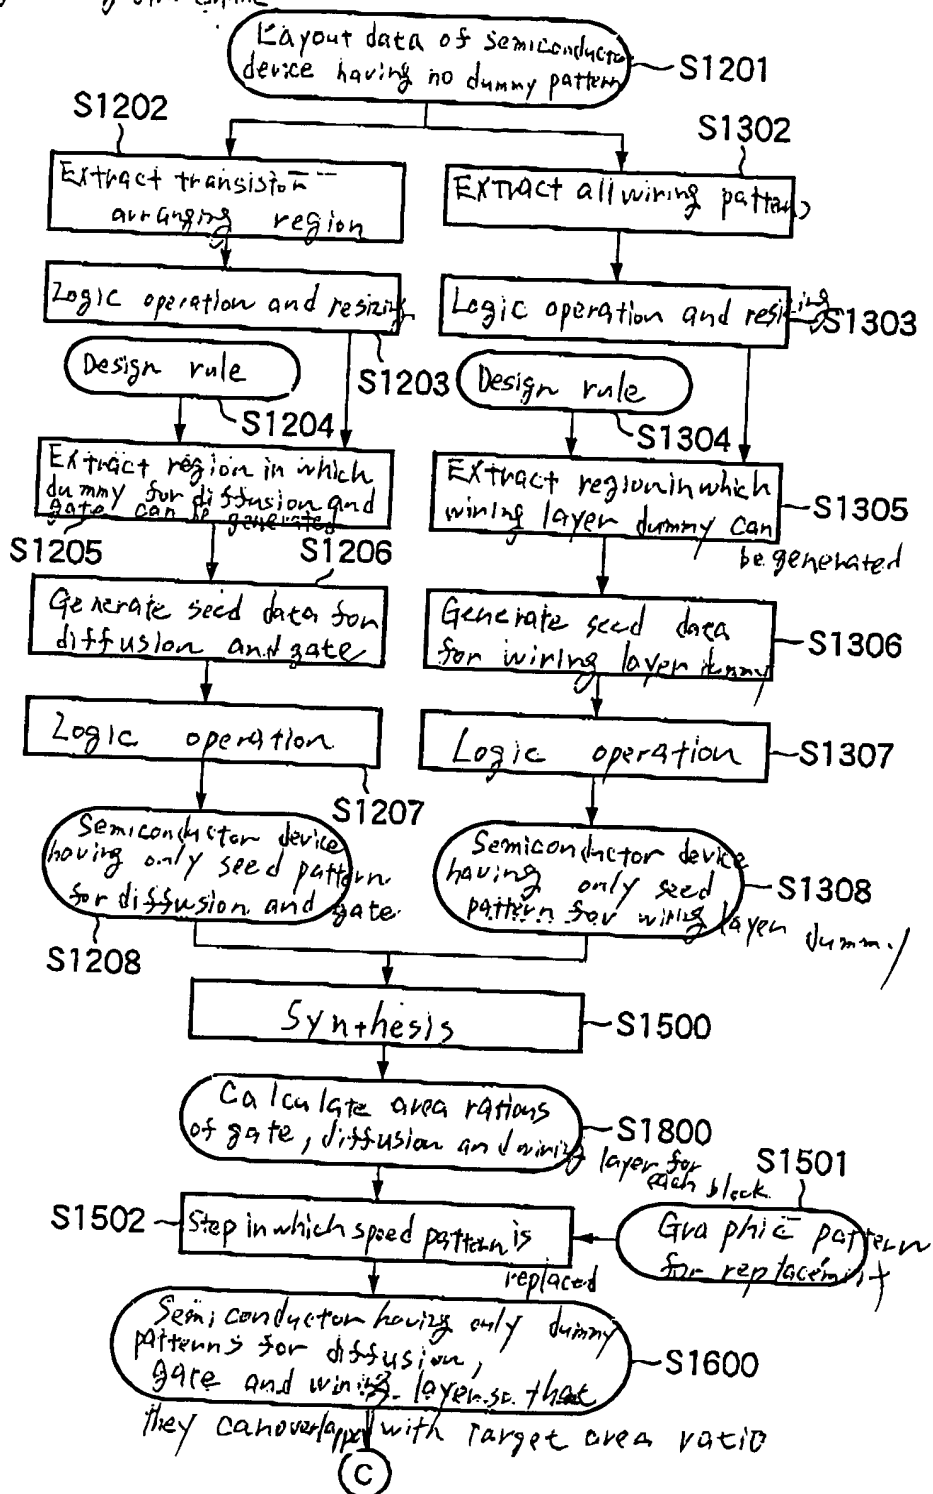 Layout data of semiconductor
device having no dummy pattern
S1201
S1202
S1302
Extract transistor
arranging region
Extract all wiring patterns
Logic operation and resizing
Logic operation and resizing
S1203
S1303
Design rule
Design rule
S1204
S1304
Extract region in which
dummy for diffusion and
gate can be generated
Extract region in which
wiring layer dummy can
be generated
S1305
S1205
S1206
Generate seed data for
diffusion and gate
Generate seed data
for wiring layer dummy
S1306
Logic operation
Logic operation
S1307
S1207
Semiconductor device
having only seed pattern
for diffusion and gate
Semiconductor device
having only seed
pattern for wiring layer dummy
S1308
S1208
Synthesis
S1500
Calculate area rations
of gate, diffusion and wiring layer for
each block
S1800
S1501
S1502
Step in which speed pattern is
replaced
Graphic pattern
for replacement
Semiconductor having only dummy
patterns for diffusion,
gate and wiring layer so that
they can overlapped with Target area ratio
S1600
C